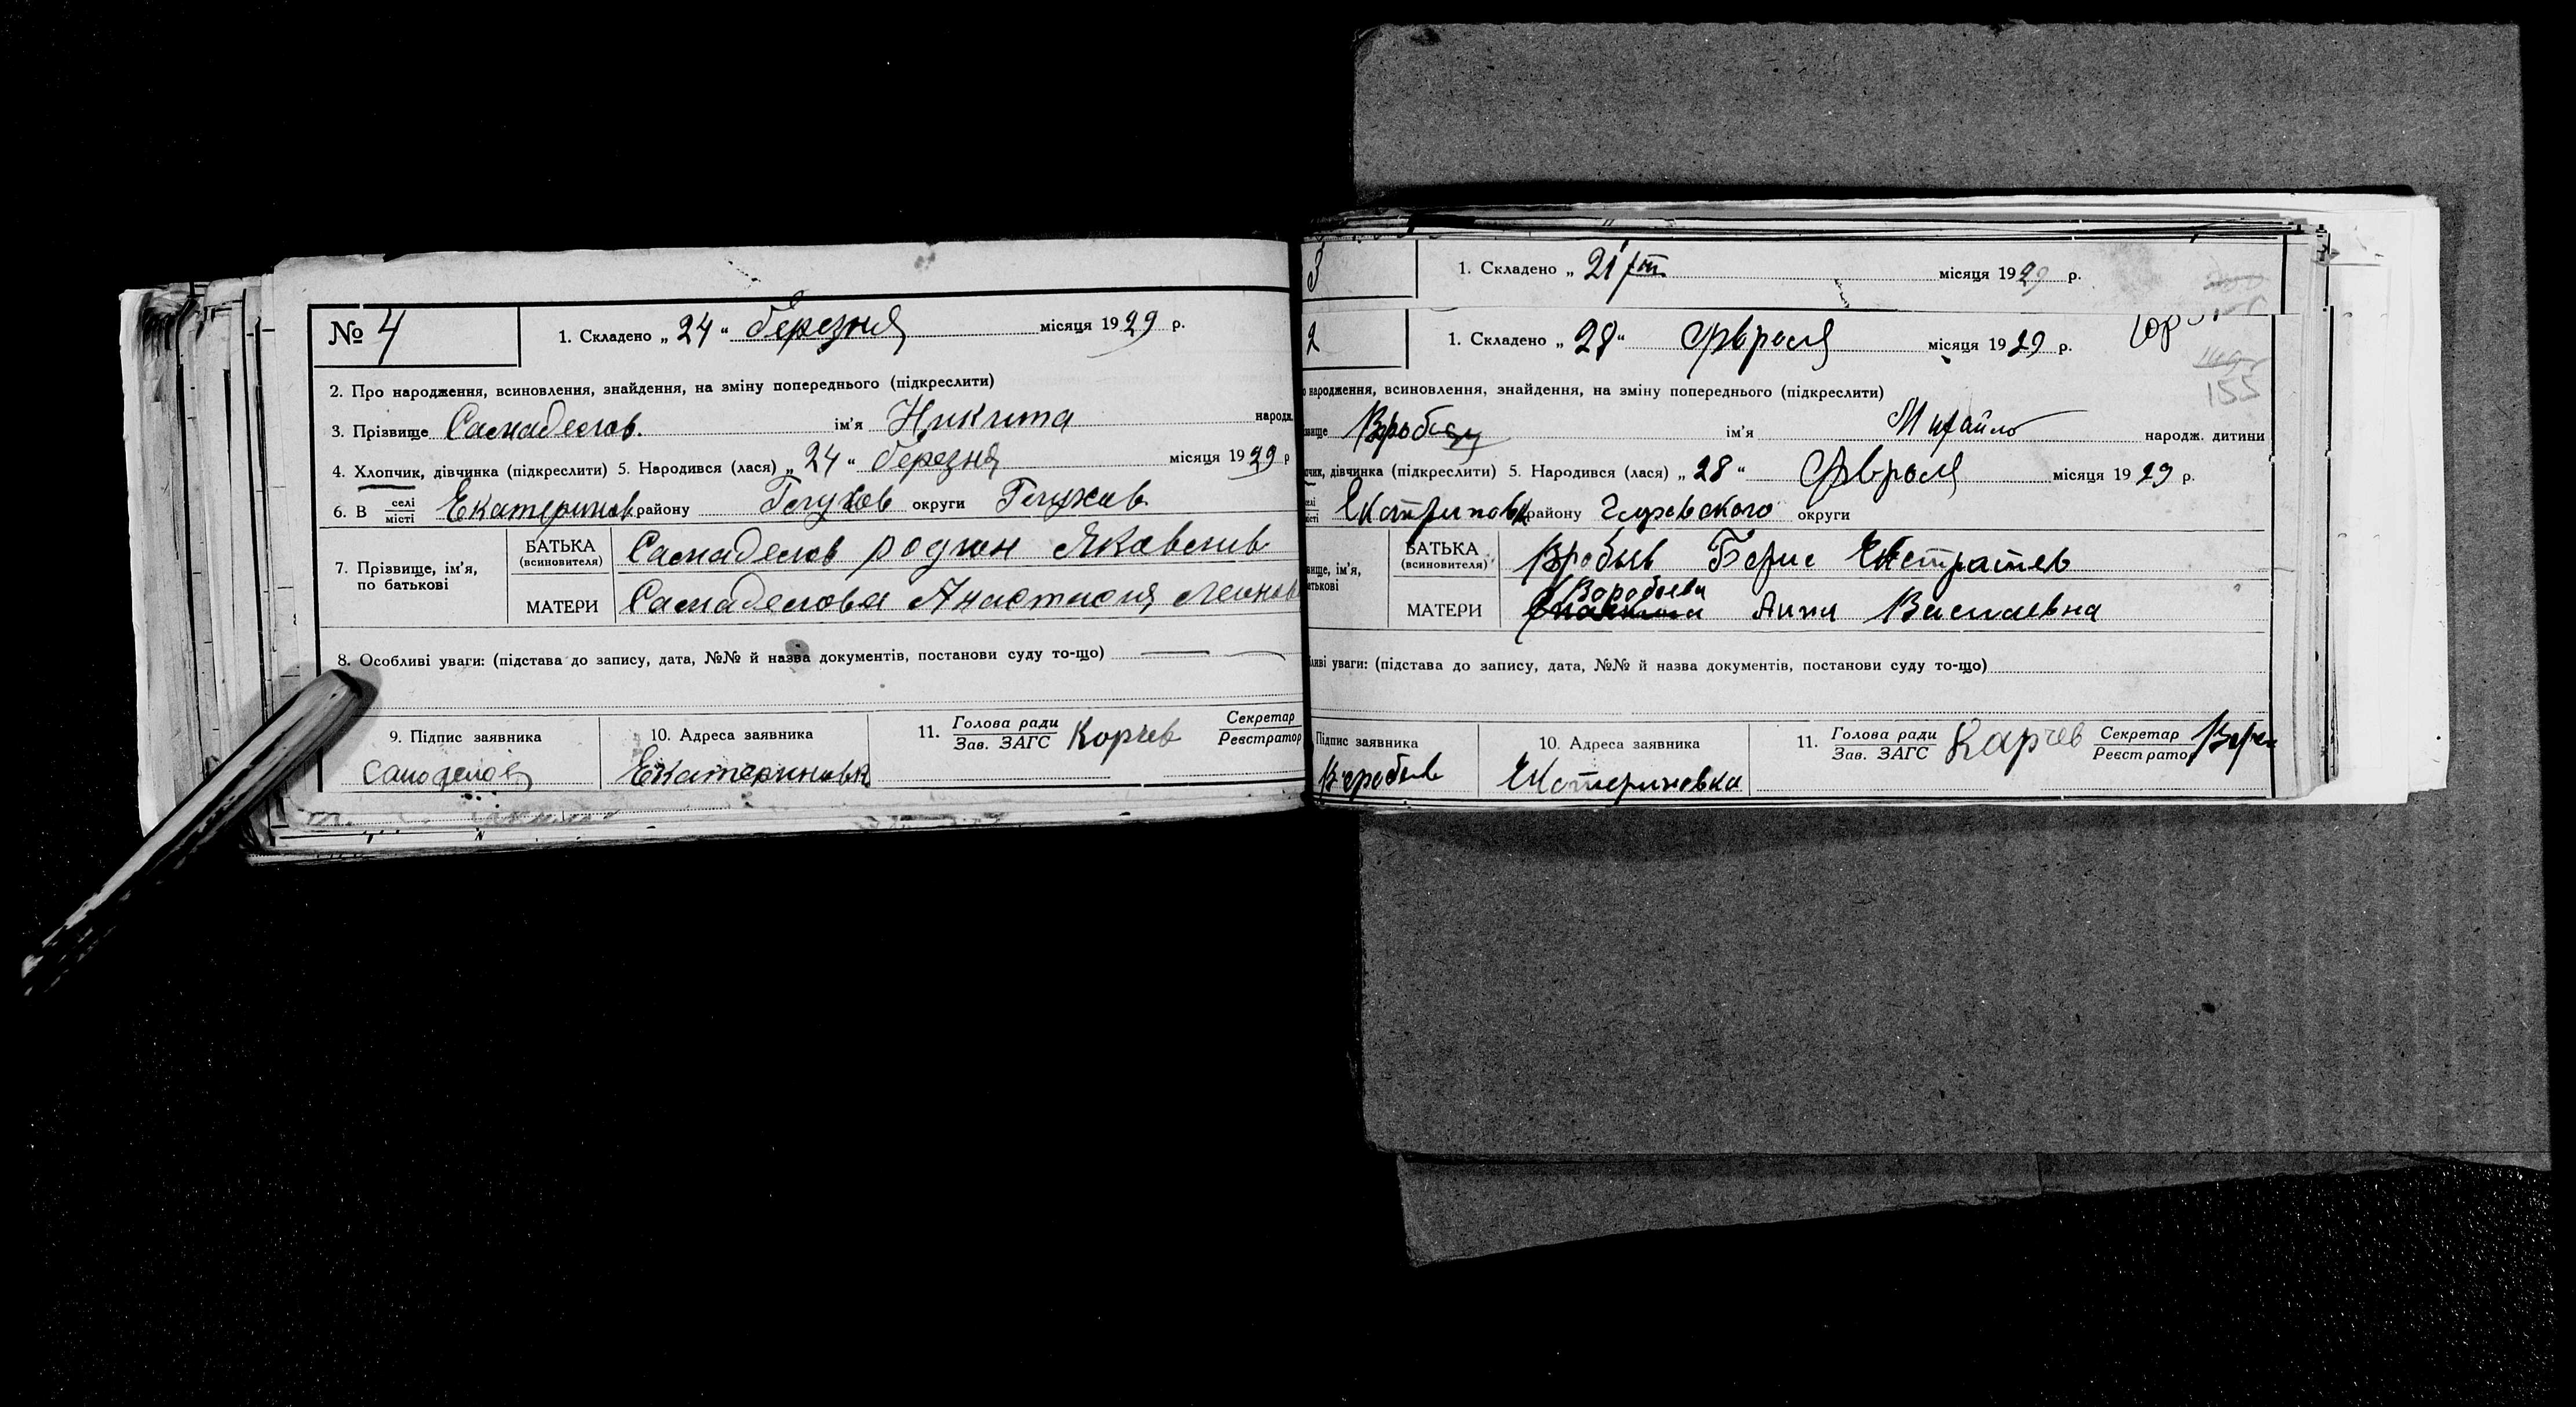 № 4
1. Складено „ 24 “ березня місяця 1929 р.
2. Про народження, всиновлення, знайдення, на зміну попереднього (підкреслити)
3. Прізвище Самаделов. ім'я Никита народж.
4. Хлопчик, дівчинка (підкреслити) 5. Народився (лася) „ 24 “ березня місяця 1929 р
6. В селі місті Екатеринов. району Глухов округи Глухов
7. Прізвище, ім'я, по батькові
БАТЬКА (всиновителя) Самаделов родион Яковлив
МАТЕРИ Самаделова Анастасия
8. Особливі уваги: (підстава до запису, дата, №№ й назва документів, постанови суду то-що)
9. Підпис заявника
Самоделов
10. Адреса заявника
Екатериновк
11. Голова ради Зав. ЗАГС Корчев Секретар Реєстратор
3
1. Складено „ 21 місяця 1929 р.
2
1. Складено „ 28 “ Фвраля місяця 1929 р.
155
народження, всиновлення, знайдення, на зміну попереднього (підкреслити)
ім'я Михайло народж. дитини
дівчинка (підкреслити) 5. Народився (лася) „ 28 “ Фвраля місяця 1929 р.
району Глуховского округи
ім'я,
БАТЬКА (всиновителя) Вробьев Борис
Воробьева
МАТЕРИ Анна Васильевна
уваги: (підстава до запису, дата, №№ й назва документів, постанови суду то-що)
Підпис заявника
Воробьев
10. Адреса заявника
Екотериновка
11. Голова ради Зав. ЗАГС Карчев Секретар Реєстратор